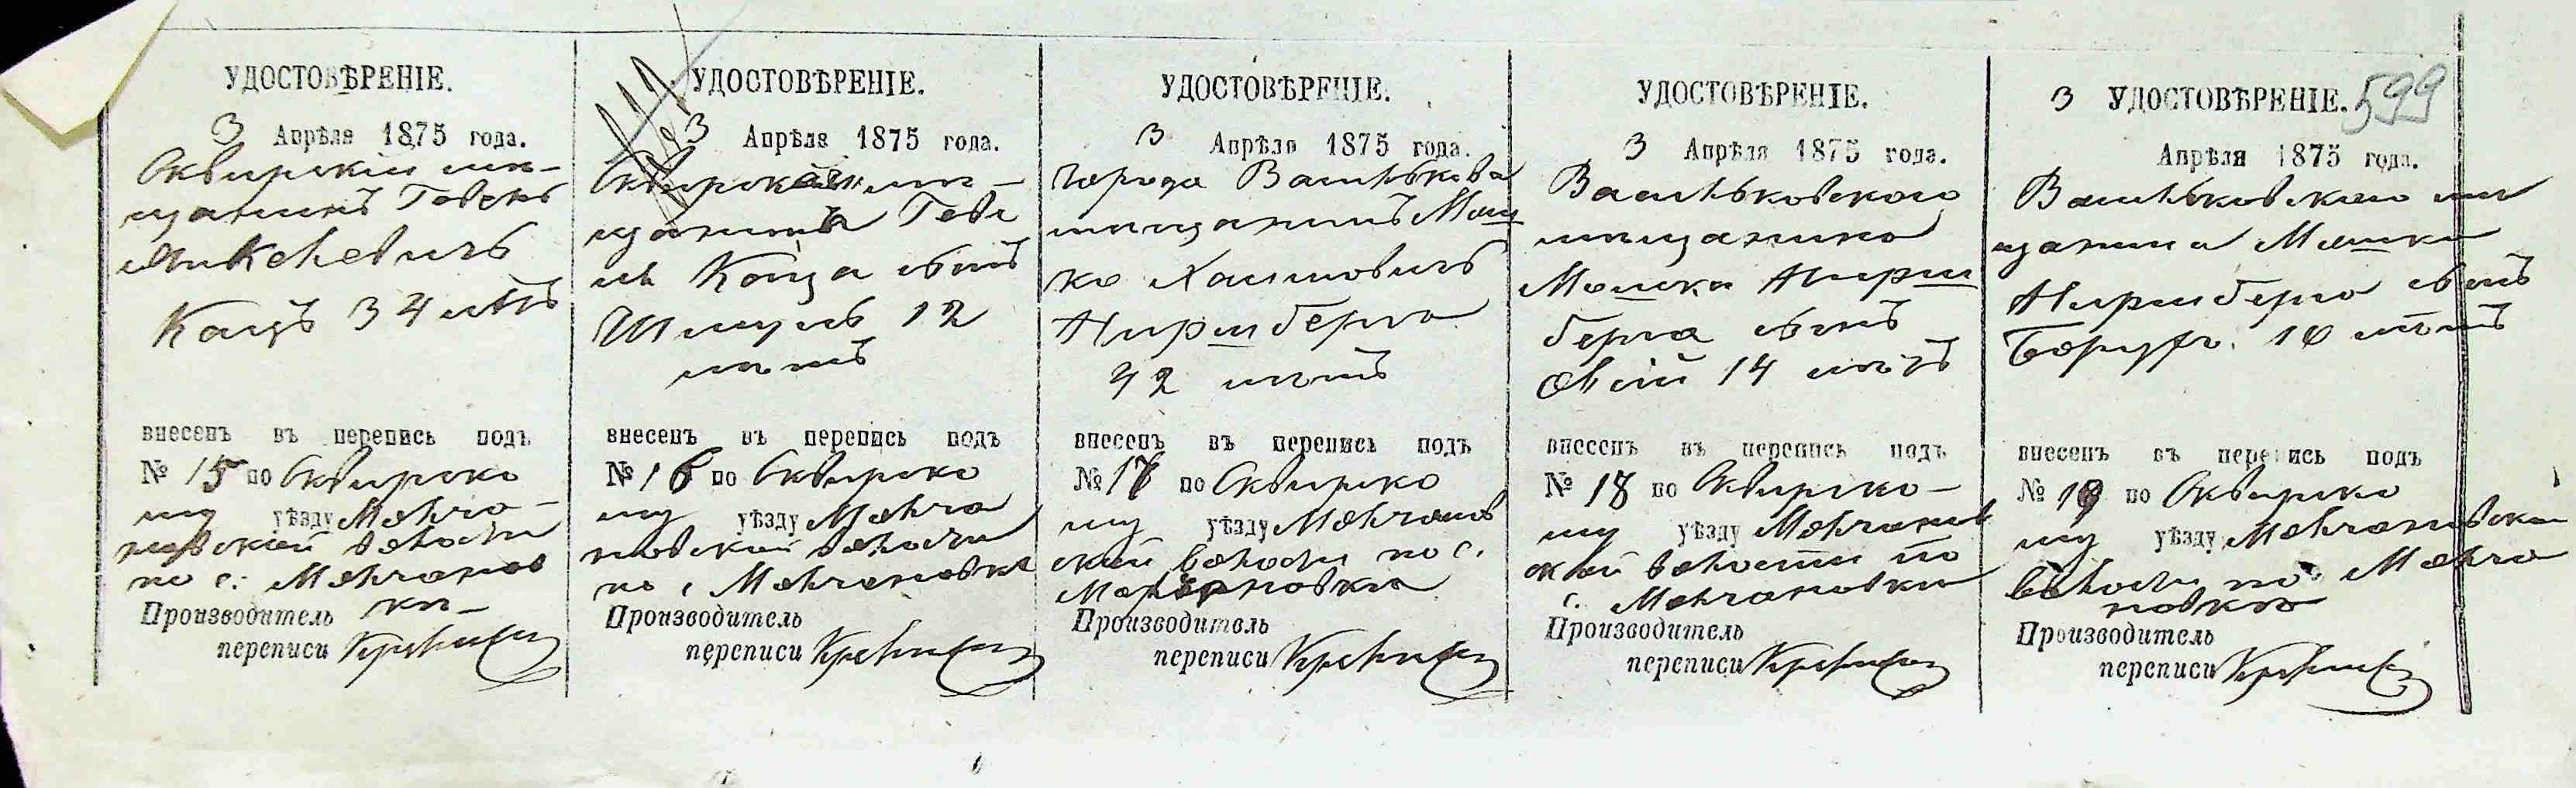 УДОСТОВѢРЕНІЕ.
3 Апрѣля 1875 года.
Сквирскій мѣ-
щанинъ
Кацъ 34 лѣтъ
внесенъ въ перепись подъ
№ 15 по Сквирско
му уѣзду Молча-
новской волости
по с. Молчанов
кѣ-
Производитель
переписи
УДОСТОВѢРЕНІЕ.
3 Апрѣля 1875 года.
мѣ-
щанина
Каца сынъ
Шмуль 12
лѣтъ
внесенъ въ перепись подъ
№ 16 по Сквирско
му уѣзду Молча
новской волости
по с Молчановкѣ
Производитель
переписи
УДОСТОВѢРЕНІЕ.
3 Апрѣля 1875 года.
города Василькова
мѣщанинъ Мош
ко Хаимовичъ
Ниришберга
42 лѣтъ
внесенъ въ перепись подъ
№ 17 по Сквирско
му уѣзду Молчанов
ской волости по с.
Молчановка
Производитель
переписи
УДОСТОВѢРЕНІЕ.
3 Апрѣля 1875 года.
Васильковского
мѣщанина
Мошка Нирш
берга сынъ
14 лѣтъ
внесенъ въ перепись подъ
№ 18 по Сквирско-
му уѣзду Молчанов
ской волости по
с. Молчановка
Производитель
переписи
599
3 УДОСТОВѢРЕНІЕ.
Апрѣля 1875 года.
Васильковскаго мѣ
щанина Мошки
Ниршберга сынъ
Борухъ 10 лѣтъ
внесенъ въ перепись подъ
№ 19 по Сквирско
му уѣзду Молчановской
волости по Молча
новка
Производитель
переписи